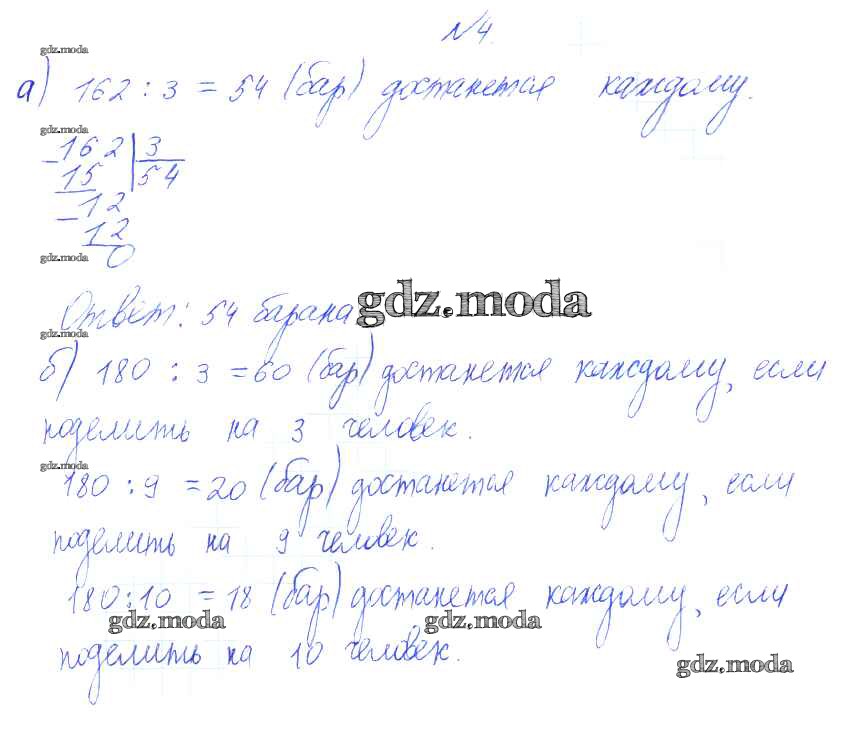 №4.
gdz.moda
а) 162 : 3 = 54 (бар) достанется каждому.
gdz.moda
- 162 | 3
15 54
- 12
12
0
gdz.moda
Ответ: 54 барана gdz.moda
gdz.moda
б) 180 : 3 = 60 (бар) достанется каждому, если
поделить на 3 человек.
gdz.moda
180 : 9 = 20 (бар) достанется каждому, если
поделить на 9 человек.
180:10 = 18 (бар) достанется каждому, если
gdz.moda gdz.moda
поделить на 10 человек.
gdz.moda